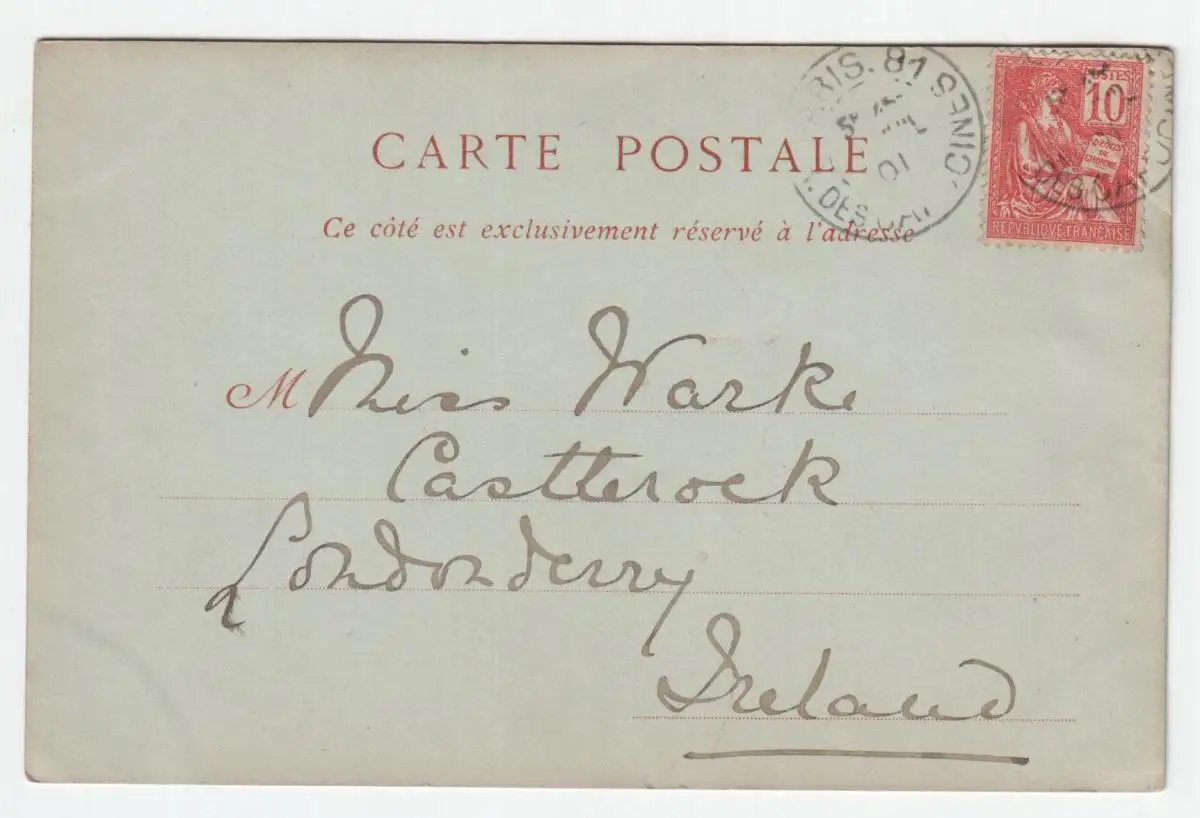 CARTE POSTALE
Ce côté est exclusivement réservé à l'adresse
PARIS. 81
DES CAPUCINES
01
POSTES
10
DROITS
DE
L'HOMME
REPVBLIQVE FRANÇAISE
M Miss Warke
Castlerock
Londonderry
Ireland